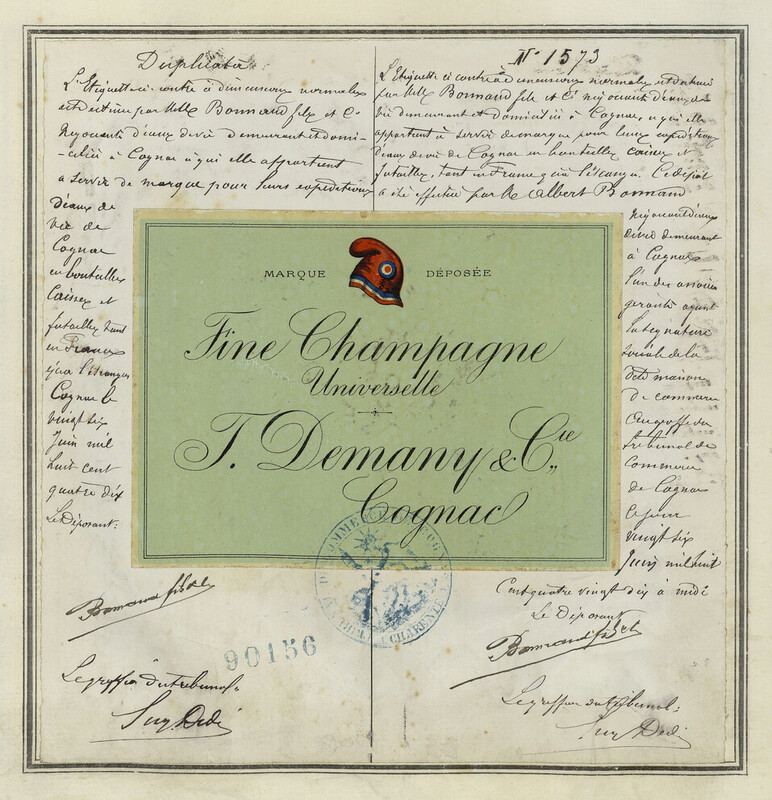 Duplicata
L'Etiquette ci-contre à dimensions normales
est destinée par MM. Bonnaud fils et Cie
Négociants d'eaux de vie demeurant et domi-
-ciliés à Cognac à qui elle appartient
à servir de marque pour leurs expéditions
d'eaux de
vie de
Cognac
en bouteilles
Caisses et
futailles tant
en France
qu'à l'étranger
Cognac le
vingt six
Juin mil
huit cent
quatre dix
Le Déposant:
Bonnaud fils & Cie
Le greffier du tribunal:
N° 1573
L'Etiquette ci contre à dimensions normales est destinée
par MM. Bonnaud fils et Cie négociants d'eaux de
vie demeurant et domiciliés à Cognac, à qui elle
appartient à servir de marque pour leurs expéditions
d'eaux de vie de Cognac en bouteilles, caisses et
futailles, tant en France qu'à l'étranger. Ce dépôt
a été effectué par M. Albert Bonnaud
Négociant d'eaux
de vie demeurant
à Cognac
l'un des associés
gérants ayant
la signature
sociale de la
dite maison
de commerce
Au greffe du
tribunal de
Commerce
de Cognac
ce jour
vingt six
Juin mil huit
Cent quatre vingt dix à midi
Le Déposant
Bonnaud fils & Cie
Le greffier du tribunal:
MARQUE DÉPOSÉE
Fine Champagne
Universelle
T. Demany & Cie,,
Cognac
90156